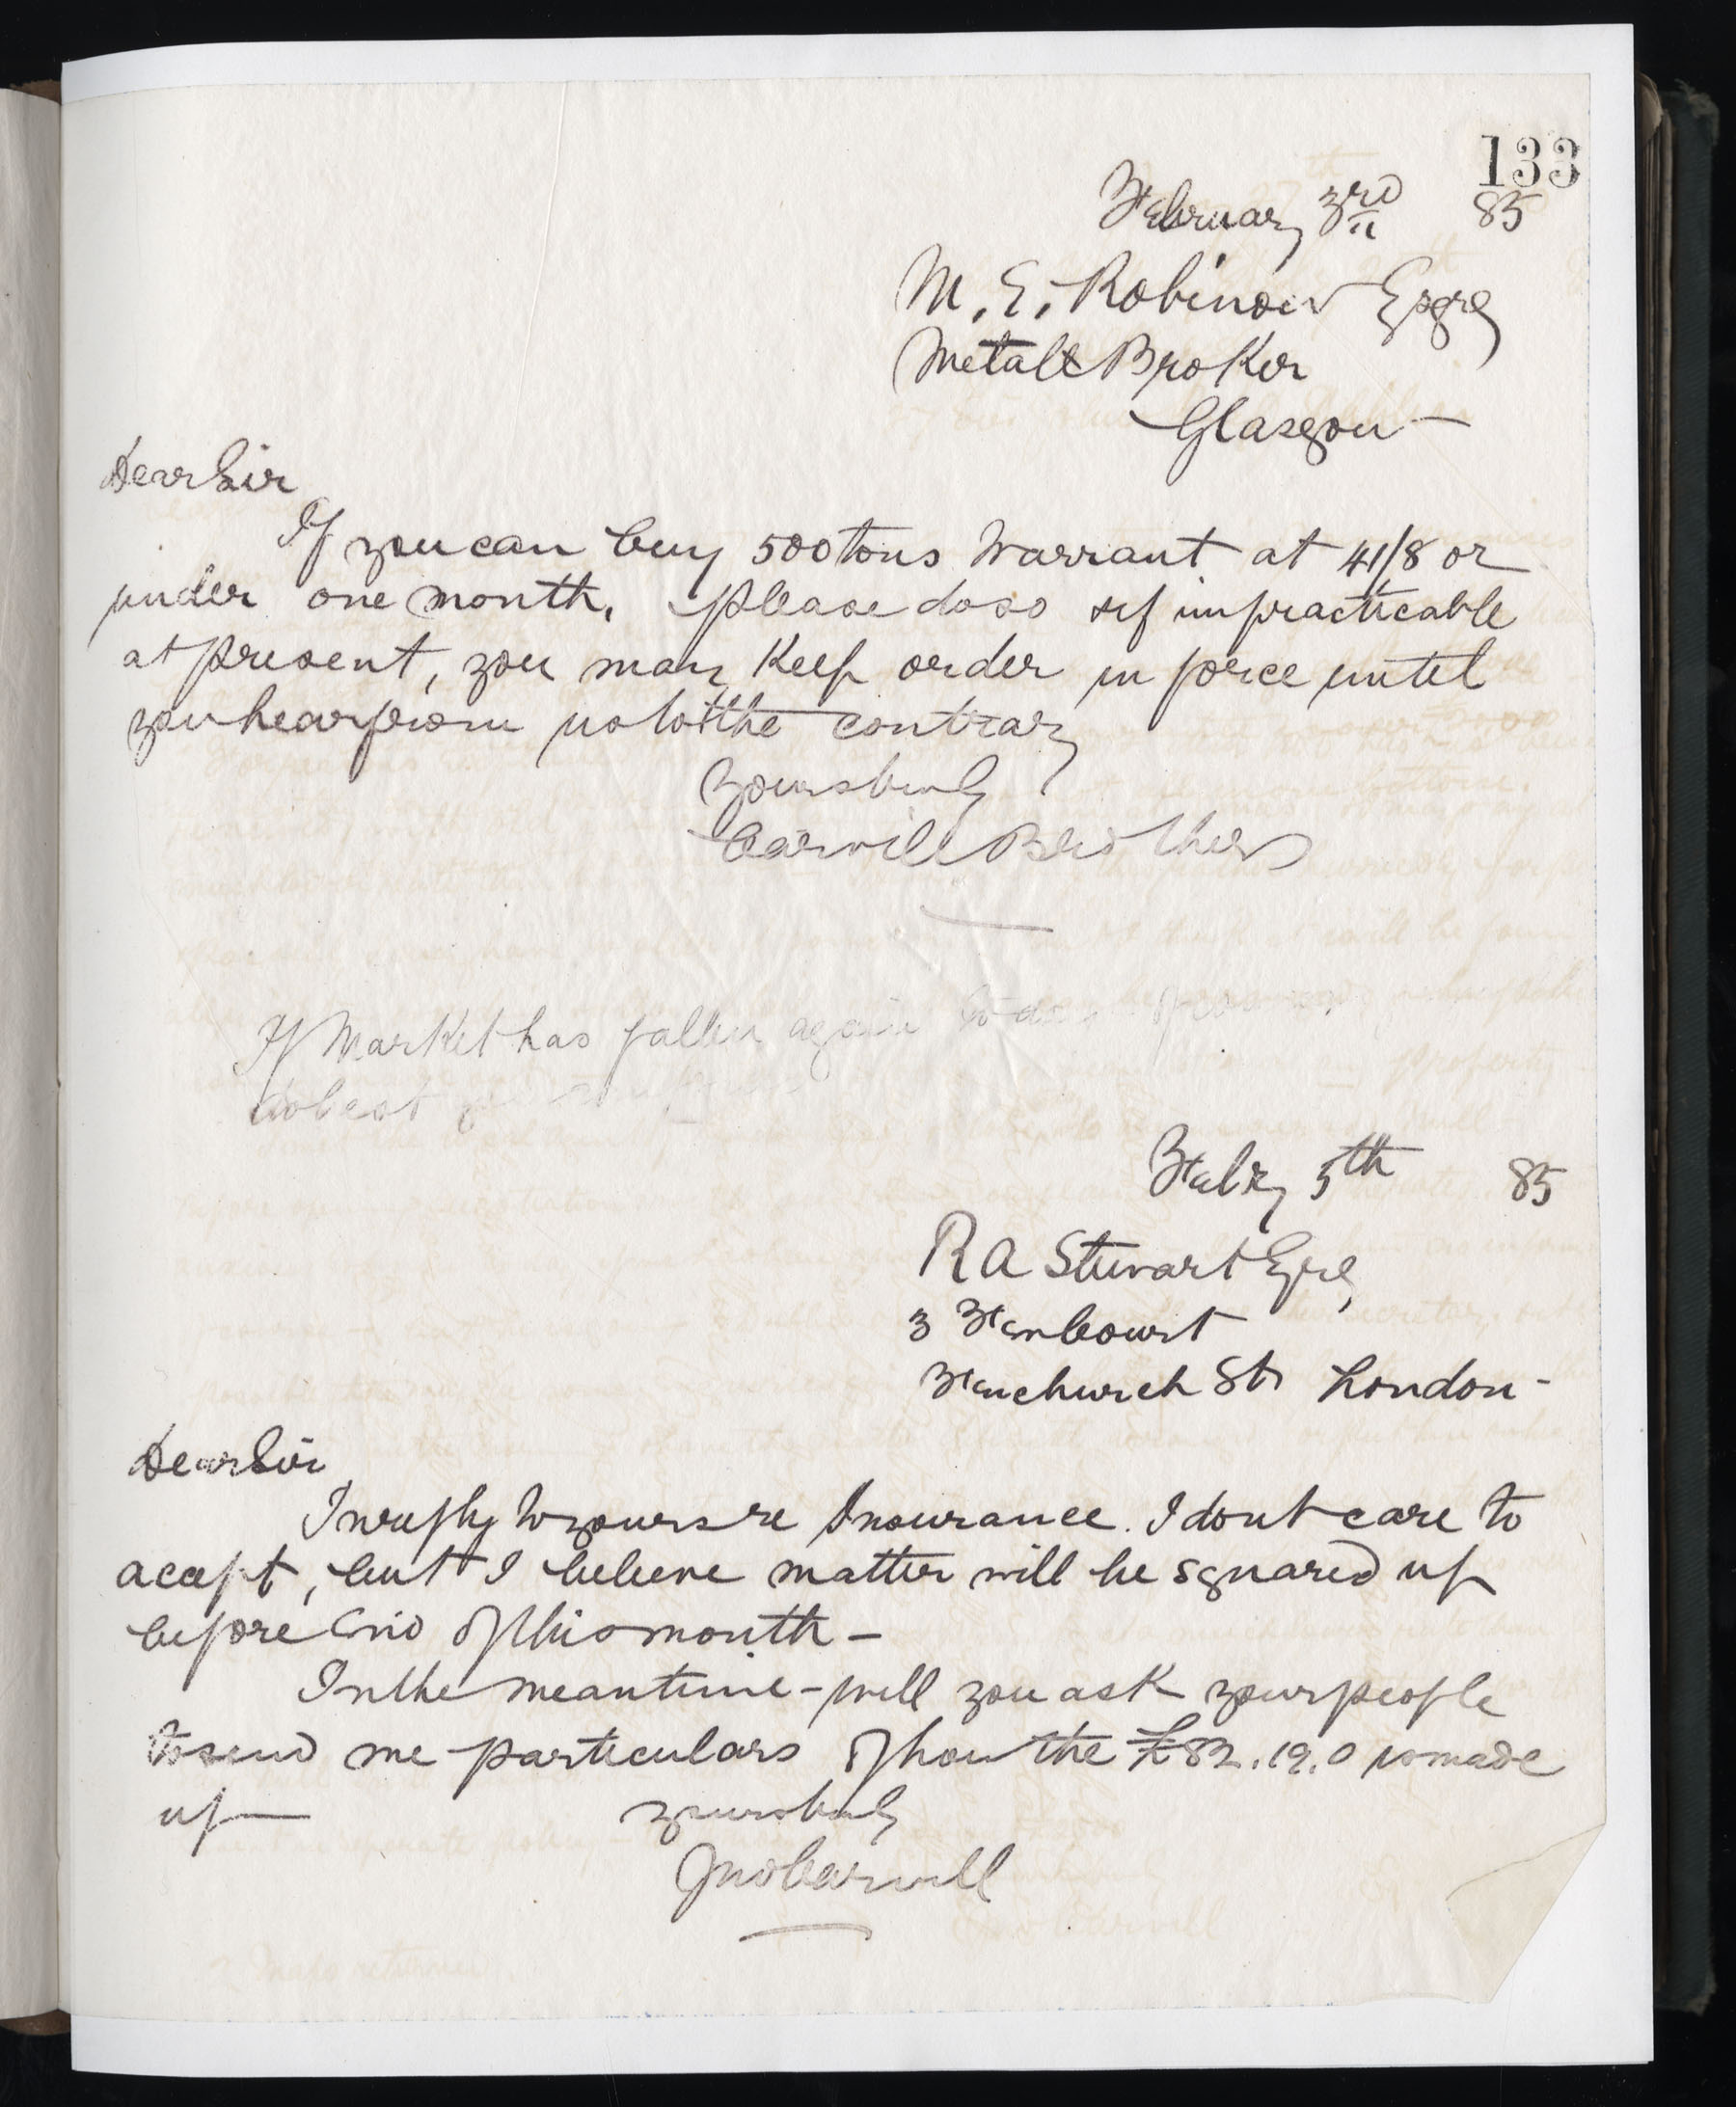 133
February 3rd 85
M. E. Robinow Esqre
Metal Broker
Glasgow
Dear Sir
If you can buy 500 tons Warrant at 41/8 or
under one month, please do so & if impracticable
at present, you may keep order in force until
you hear from us to the contrary
Yours truly
Carvill Brothers
If Market has fallen again
do best
Feby 5th 85
R A Stewart Esqre,
3 Fen Court
Fenchurch St London-
Dear Sir
In reply to yours re Insurance. I dont care to
accept, but I believe matter will be squared up
before End of this month -
In the meantime - will you ask your people
to send me particulars of how the £82.19.0 is made
up
yours truly
Jno Carvill